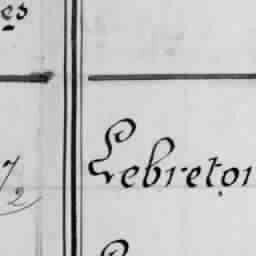 es
7/2
Lebreton